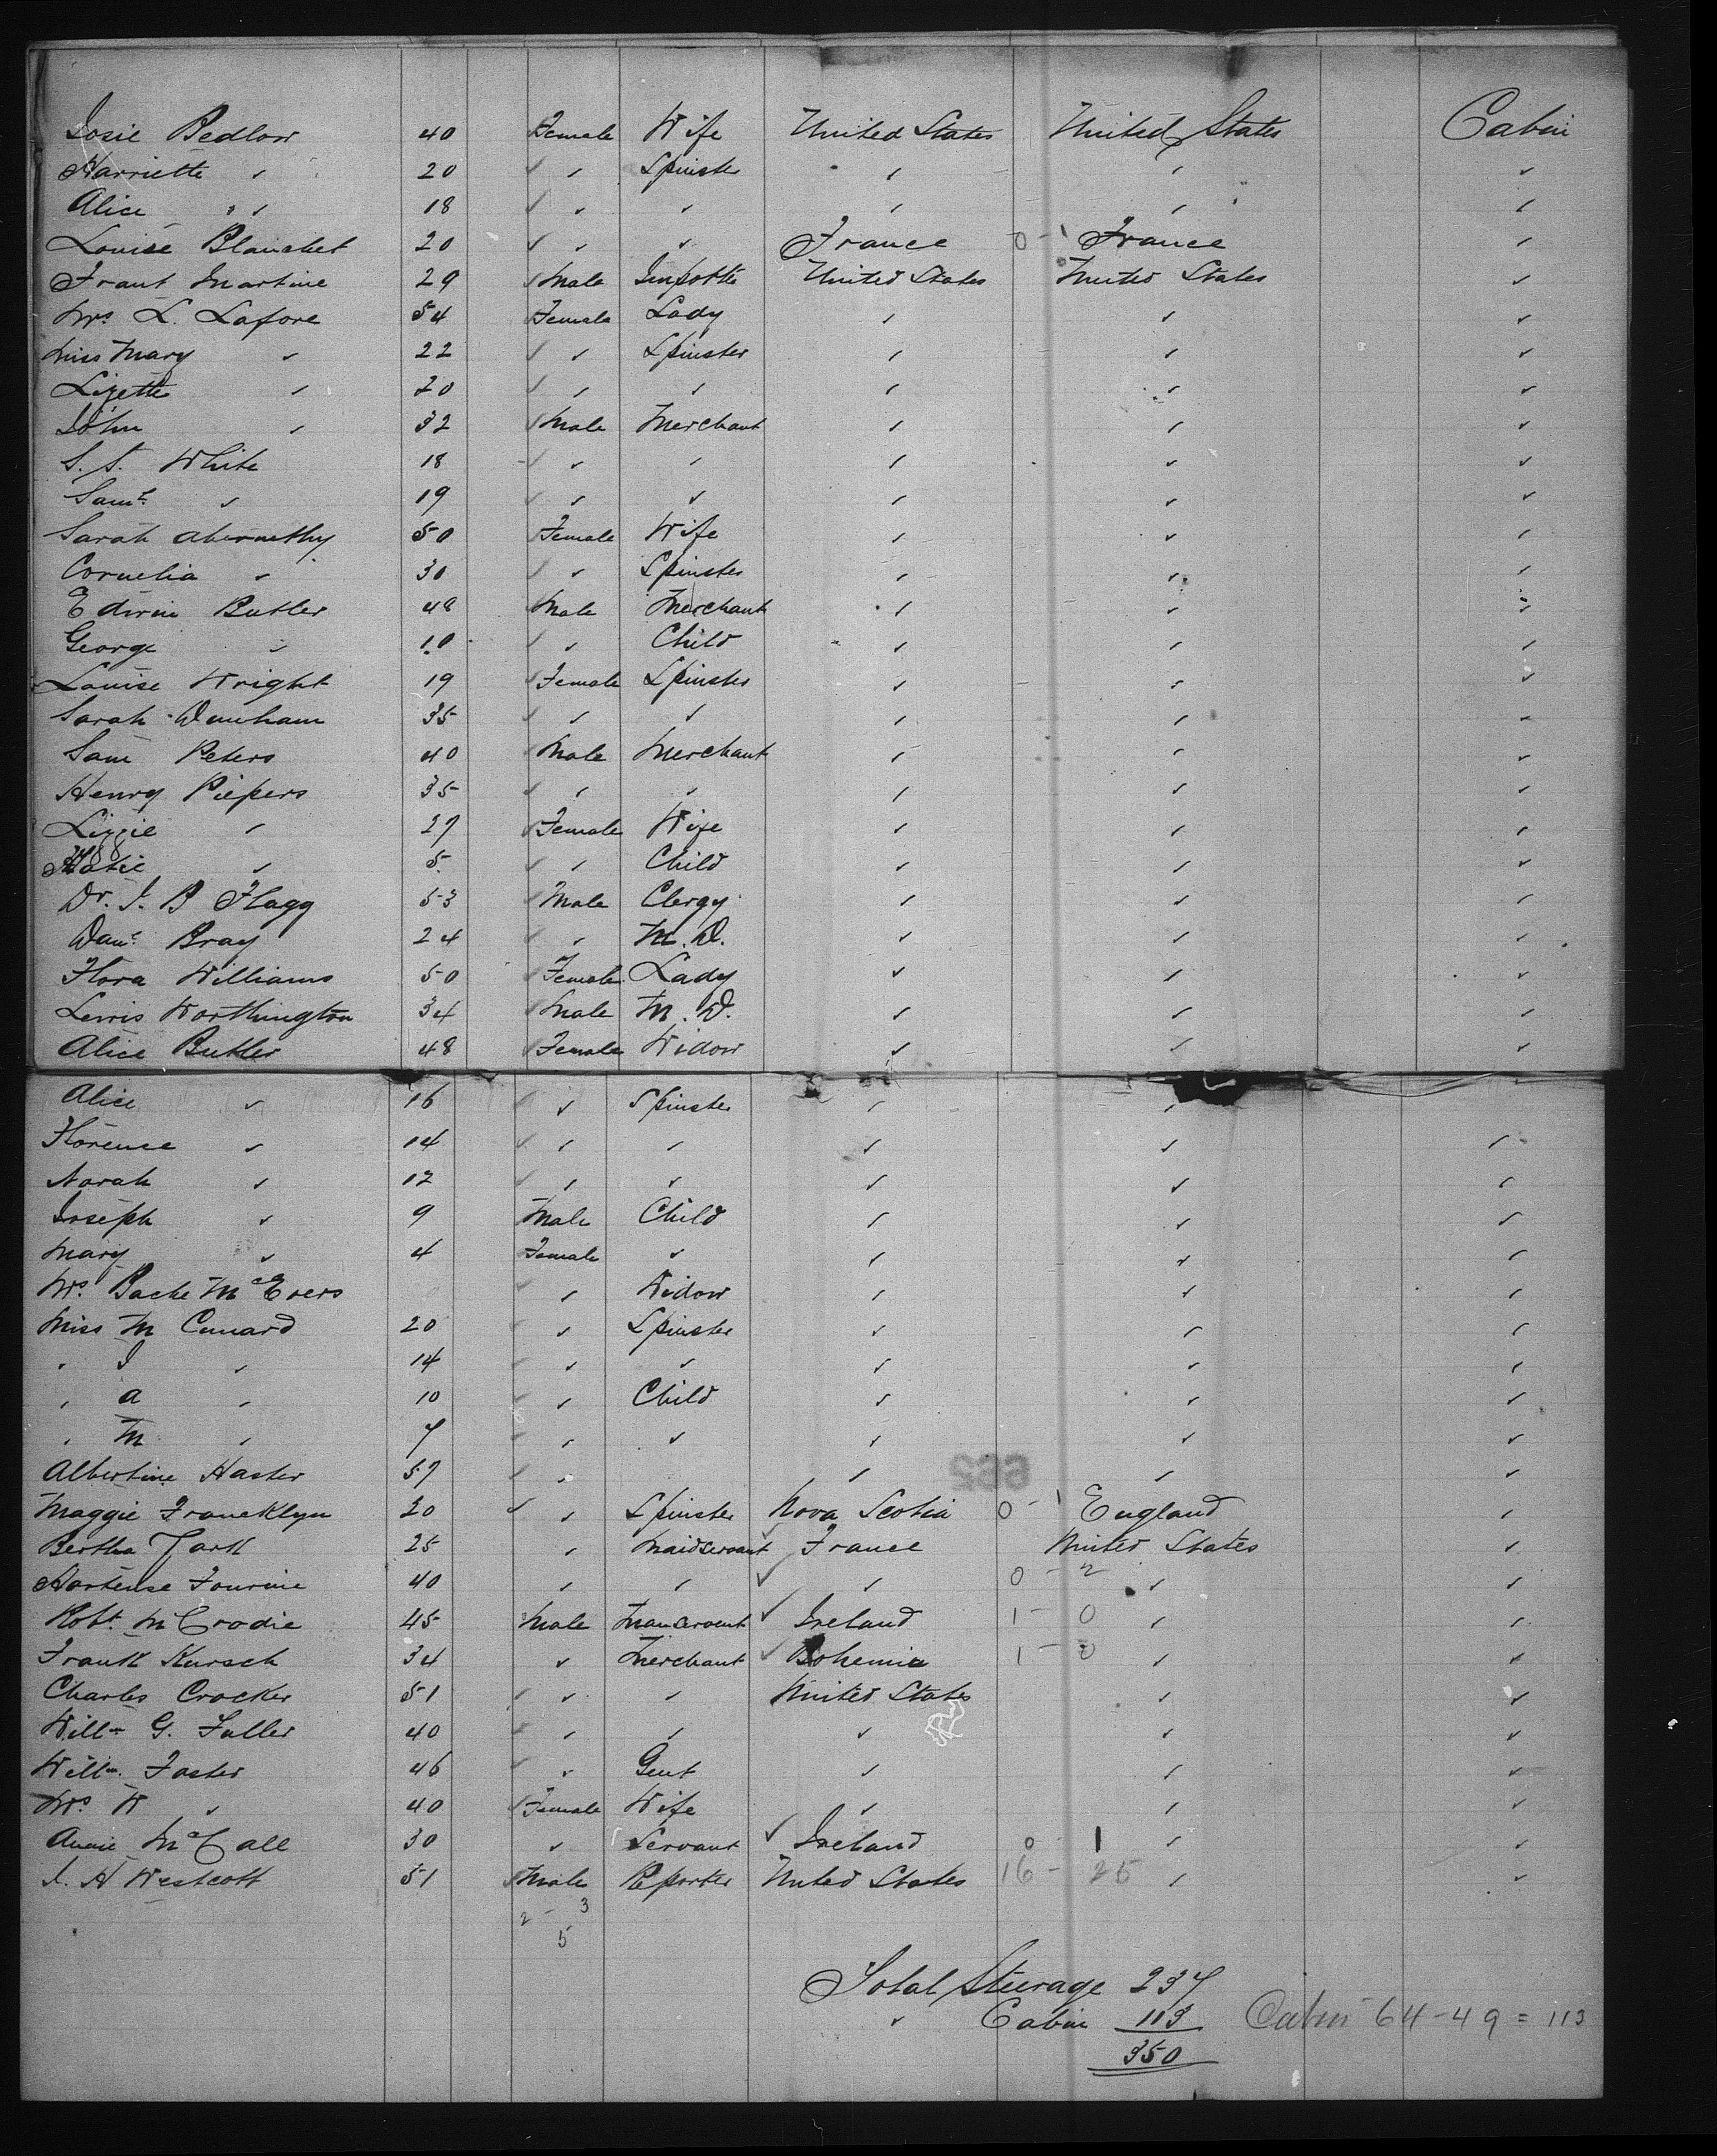 Josie Bedlow 40 Female Wife United States United States Cabin
Harriette " 20 " " Spinster " " "
Alice " " 18 " " " " " "
Louise Blanchet 20 " " " France 0 - 1 France "
Frant Martine 29 Male United States United States "
Mrs L. Lafore 54 Female Lady " " "
Miss Mary " 22 " " Spinster " " "
Lizette " 20 " " " " " "
John " 32 Male Merchant " " "
S. S. White 18 " " " " " "
Saml " 19 " " " " " "
Sarah Abernethy 50 Female Wife " " "
Cornelia " 30 " " Spinster " " "
Edwin Butler 48 Male Merchant " " "
George " 10 " " Child " " "
Louise Wright 19 Female Spinster " " "
Sarah Dunham 35 " " " " " "
Sam Peters 40 Male Merchant " " "
Henry Piepers 35 " " " " " "
Lizzie " 27 Female Wife " " "
Katie " 5 " " Child " " "
Dr. J. B Flagg 53 Male Clergy " " "
Danl Bray 24 " " M. D. " " "
Flora Williams 50 Female Lady " " "
Lewis Worthington 34 Male M. D. " " "
Alice Butler 48 Female Widow " " "
Alice " 16 " " Spinster " "
Florence " 14 " " " " " "
Norah " 12 " " " " " "
Joseph " 9 Male Child " " "
Mary " 4 Female " " " "
Mrs Bache McEvers " " Widow " " "
Miss M Cunard 20 " Spinster " " "
" J " 14 " " " " " "
" A " 10 " " Child " " "
" M " 7 " " " " " "
Albertine Haster 57 " " " " "
662
Maggie Francklyn 20 " " Spinster Nova Scotia 0 - 1 England "
Bertha 25 " Maidservant France United States "
Hortense Fourine 40 " " " 0 - 2 " "
Robt McCrodie 45 Male Manservant Ireland 1 - 0 " "
Frank Kursch 34 " Merchant Bohemia 1 - 0 " "
Charles Crocker 51 " " " United States " "
Willm G. Fuller 40 " " " " " "
Willm Foster 46 " " Gent " " "
Mrs W " 40 Female Wife " " "
Annie McCall 30 " Servant Ireland 0 - 1 " "
J. H Westcott 51 Male Reporter United States 16 - 25 " "
2 - 3
5
Total Steerage 237
" Cabin 113 Cabin 64 - 49 = 113
350